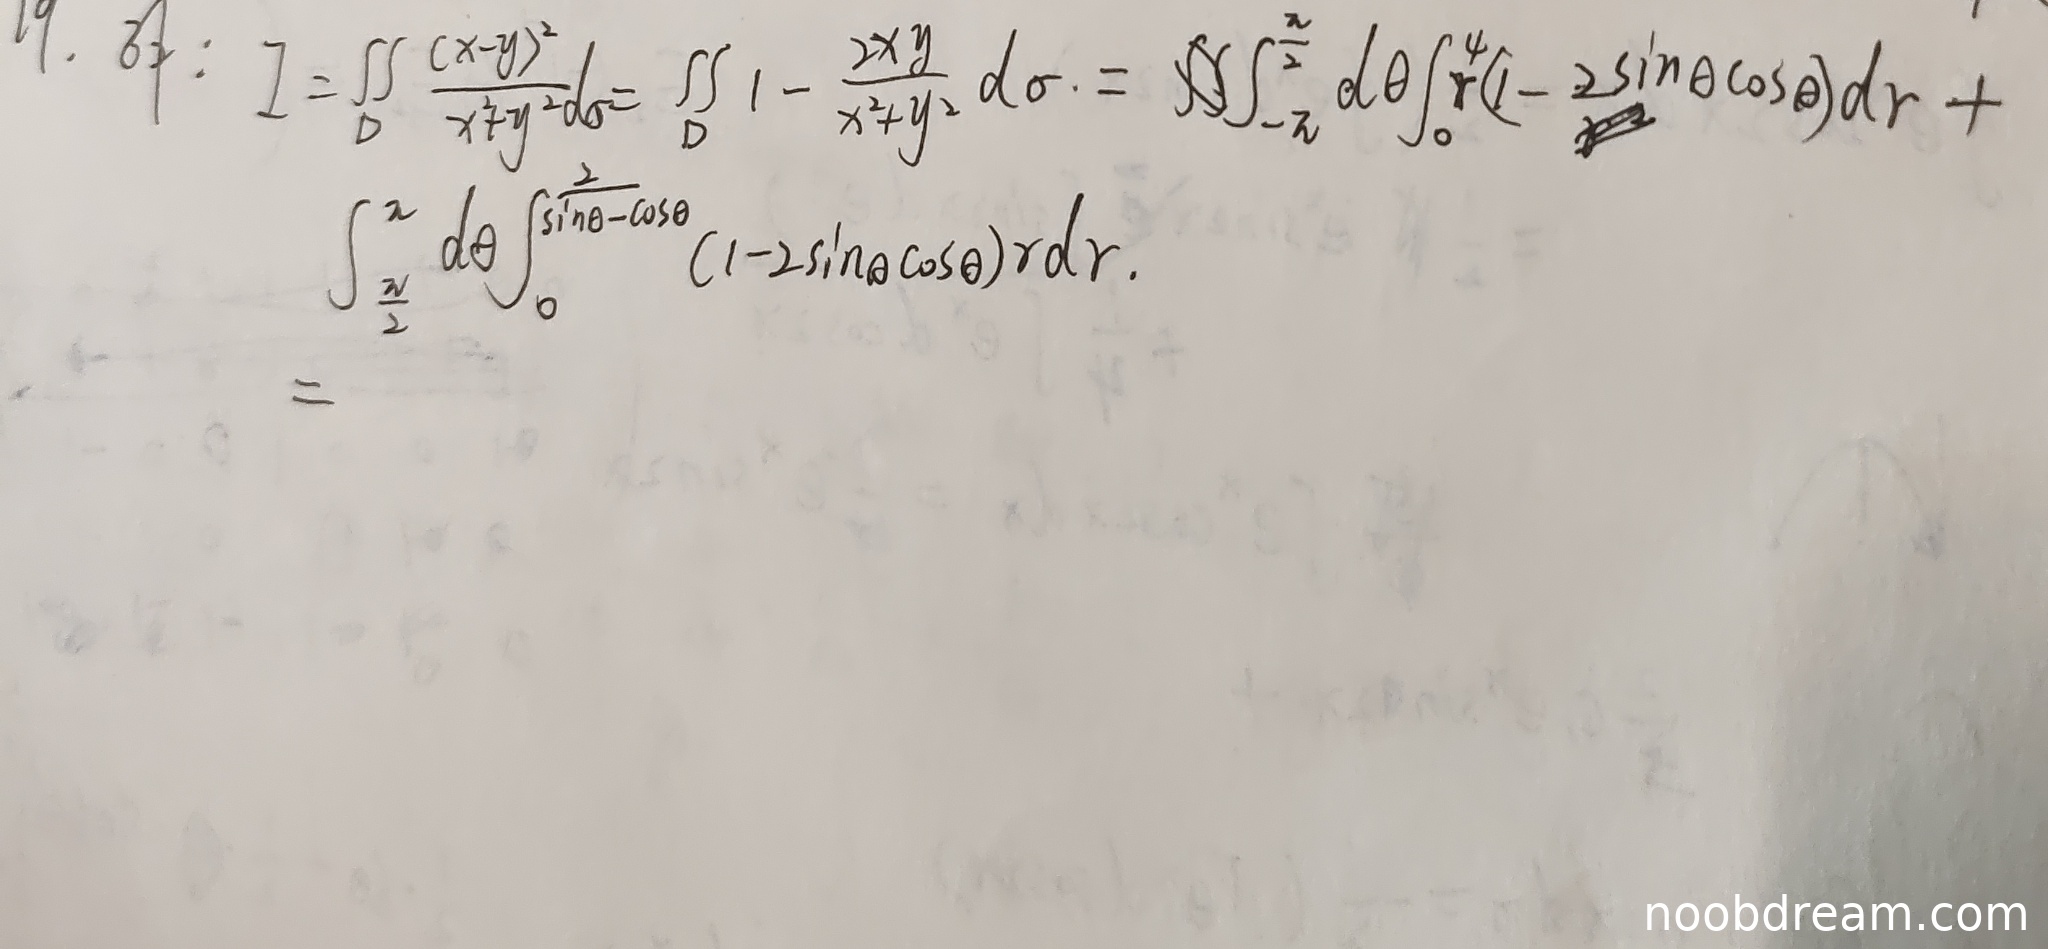 19. 解: I = ∬_D (x-y)²/(x²+y²) dσ = ∬_D 1 - 2xy/(x²+y²) dσ. = ∫_{-π}^{π/2} dθ ∫_0^4 r(1 - 2sinθcosθ)dr +
∫_{π/2}^{π} dθ ∫_0^{2/(sinθ-cosθ)} (1-2sinθcosθ)rdr.
=
noobdream.com